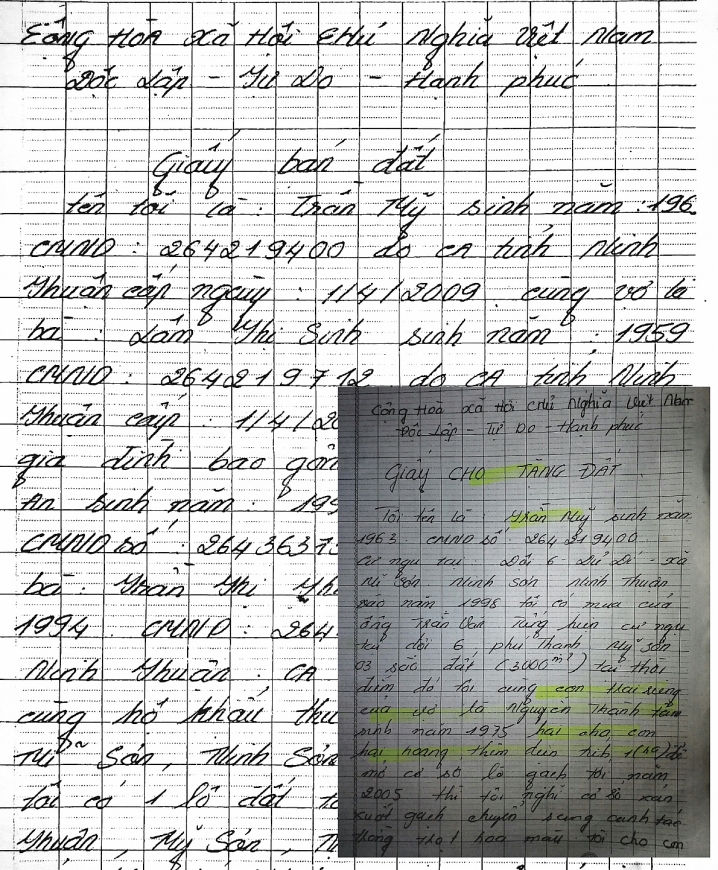 Cộng Hòa xã Hội Chủ Nghĩa Việt Nam
Độc Lập - Tự Do - Hạnh phúc
Giấy bán đất
tên tôi là : Trần Mỹ sinh năm : 196
CMND : 264219400 do CA tỉnh Ninh
Thuận cấp ngày : 1/4/2009 cùng vợ là
bà : Lâm Thị Sinh sinh năm : 1959
CMND : 264219712 do CA tỉnh Ninh
Thuận cấp : 1/4/20
gia đình bao gồm
An sinh năm : 199
CMND số : 26436373
bà : Trần Thị Th
1994 CMND : 264
Ninh Thuận : CA
cùng hộ khẩu thư
Mĩ Sơn, Ninh Sơn
tôi có 1 lô đất t
Thuận, Mỹ Sơn, N
Cộng Hoà xã Hội Chủ Nghĩa Việt Nam
Độc Lập - Tự Do - Hạnh phúc
Giấy CHO TẶNG ĐẤT
Tôi tên là : Trần Mỹ sinh năm
1963 CMND số 264219400
Cư ngụ tại : Đội 6 - xã
Mĩ Sơn Ninh Sơn Ninh Thuận
vào năm 1998 tôi có mua của
ông Trần Văn hiện cư ngụ
tại đội 6, phú Thạnh Mỹ Sơn
03 sào đất (3000m²) tại thời
điểm đó tôi cùng con trai riêng
của vợ là Nguyễn Thanh Tâm
sinh năm 1975 hai cha con
hai hoang thêm diện tích 1(sào) để
mở cơ sở lò gạch tới năm
2005 thì tôi nghỉ cơ sở sản
xuất gạch chuyển sang canh tác
trồng trọt hoa màu tôi cho con